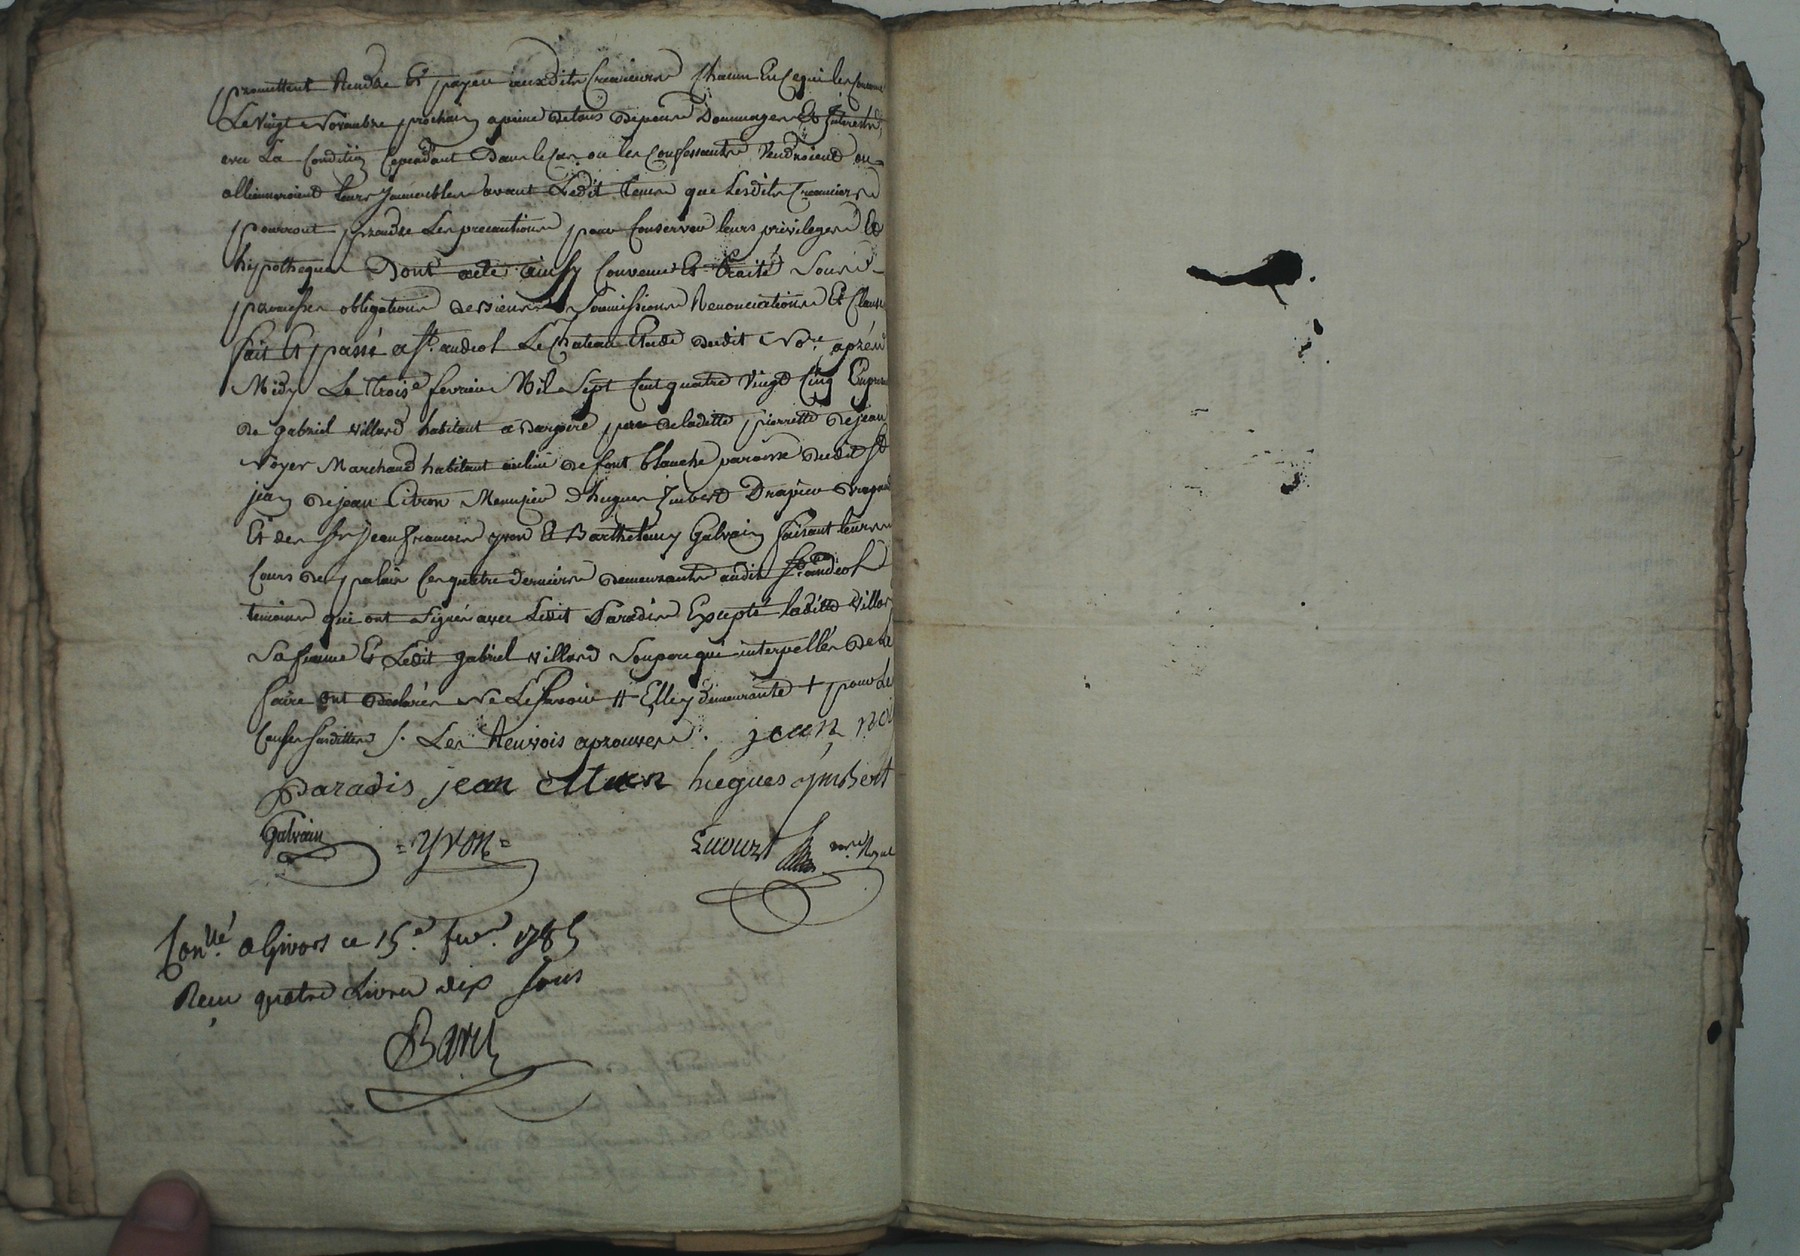 promettent Rendre Et payer auxdits Creanciers Chacun En Ce qui les Concerne
Le vingt Novembre prochain a peine de tous depens Dommages Et Interests
avec La Condition Cependant Dans le Cas ou les Confessants Vendroient ou
allieneroient leurs Immeubles avant Ledit tems que Lesdits Creanciers
pourront prendre Les precautions pour Conserver leurs privileges Et
hypotheques Dont acte ainsy Convenu Et traité Sous
promesses obligations de biens Soumissions Renonciations Et Clauses
fait Et passé a St. andeol Le Chateau Etude dudit Nore. aprés
Midy Le troise fevrier Mil Sept Cent quatre vingt Cinq En presence
de gabriel villard habitant a dargoire pere de laditte pierrette de jean
Noyer Marchand habitant au lieu de font blanche paroisse dudit St
jean de jean Citron Menuisier d'hugues Imbert Drapier drapant
Et des Srs jean francois yvon Et Barthelemy Galvain faisant leurs
Cours de palais Ces quatre derniers demeurants audit St. andeol
temoins qui ont Signé avec Ledit Paradis Excepté laditte Villard
Sa femme Et Ledit gabriel villard Son pere qui interpellés de le
faire ont declarés Ne Le Savoir # Elle y demeurante + pour les
Causes Susdittes /. Les Renvois aprouves. jean
paradis jean hugues ymbert
Galvain = yvon = nore. Royal
Conllé. a Givors ce 15.e fevr. 1785
Recu quatre Livres dix Sous